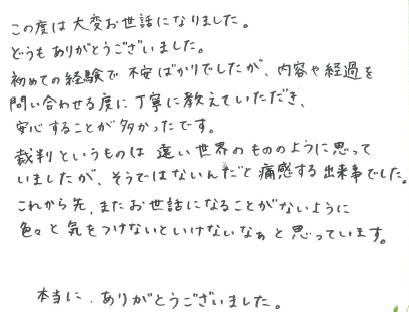 この度は大変お世話になりました。
どうもありがとうございました。
初めての経験で不安ばかりでしたが、内容や経過を
問い合わせる度に丁寧に教えていただき、
安心することが多かったです。
裁判というものは遠い世界のもののように思って
いましたが、そうではないんだと痛感する出来事でした。
これから先、またお世話になることがないように
色々と気をつけないといけないなぁと思っています。
本当に、ありがとうございました。